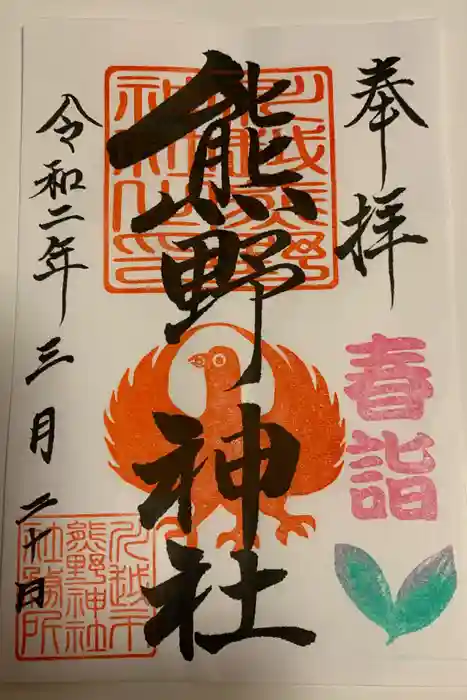 奉拝
春詣
熊野神社
川越熊野神社之印
川越市熊野神社社務所
令和二年三月二十日